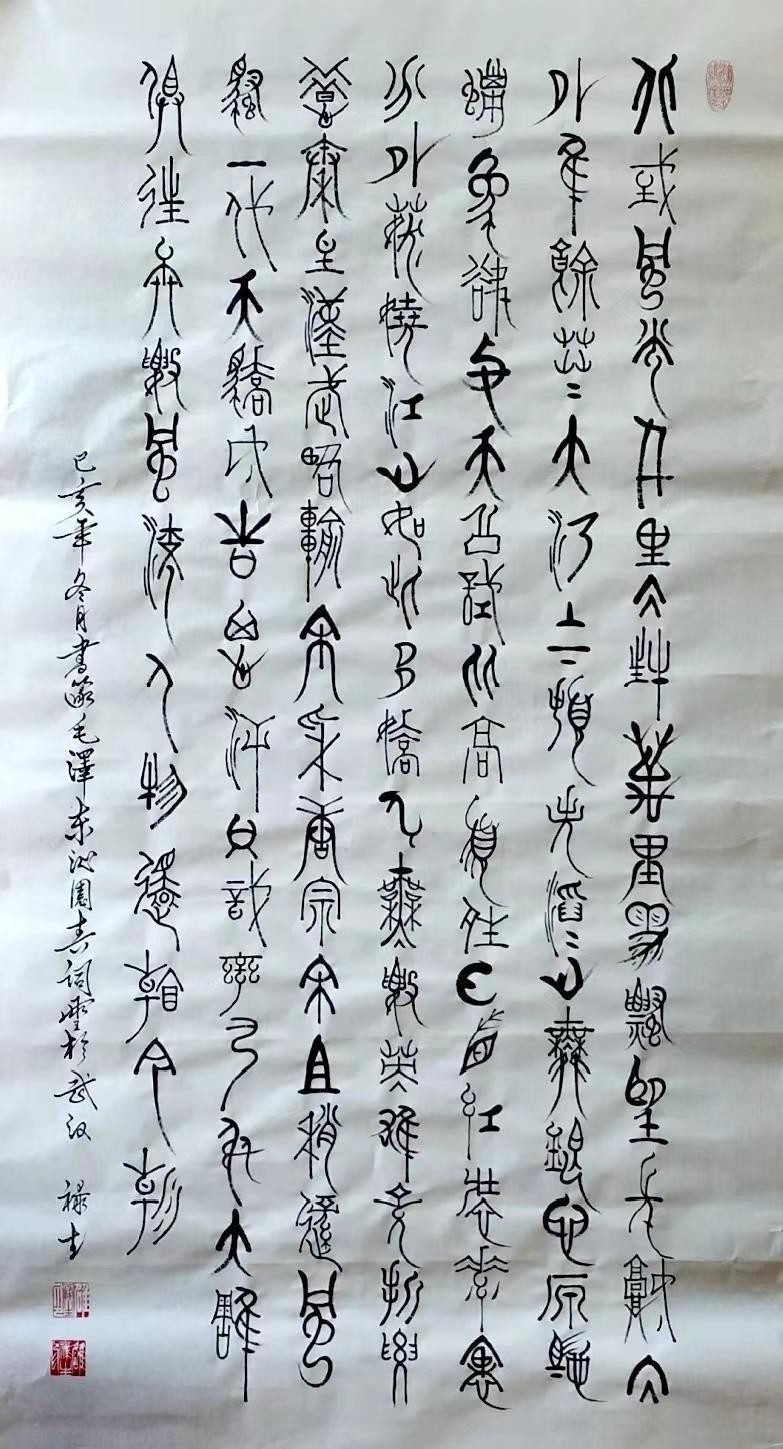 北或風光千里冰封萬里雪飄望長城内
外隹餘茫=大河上下頓失滔=山舞銀它原馳
蠟象欲与天公試比高須晴日看紅裝素裹
分外妖嬈江山如此多嬌引無數英雄竞折要
惜秦皇漢武略輸文采唐宗宋且稍遜風
騷一代天驕成吉思汗只識彎弓射大雕
俱往矣數風流人物還看今朝
己亥年冬月書篆毛澤東沁園春詞雪於武汉